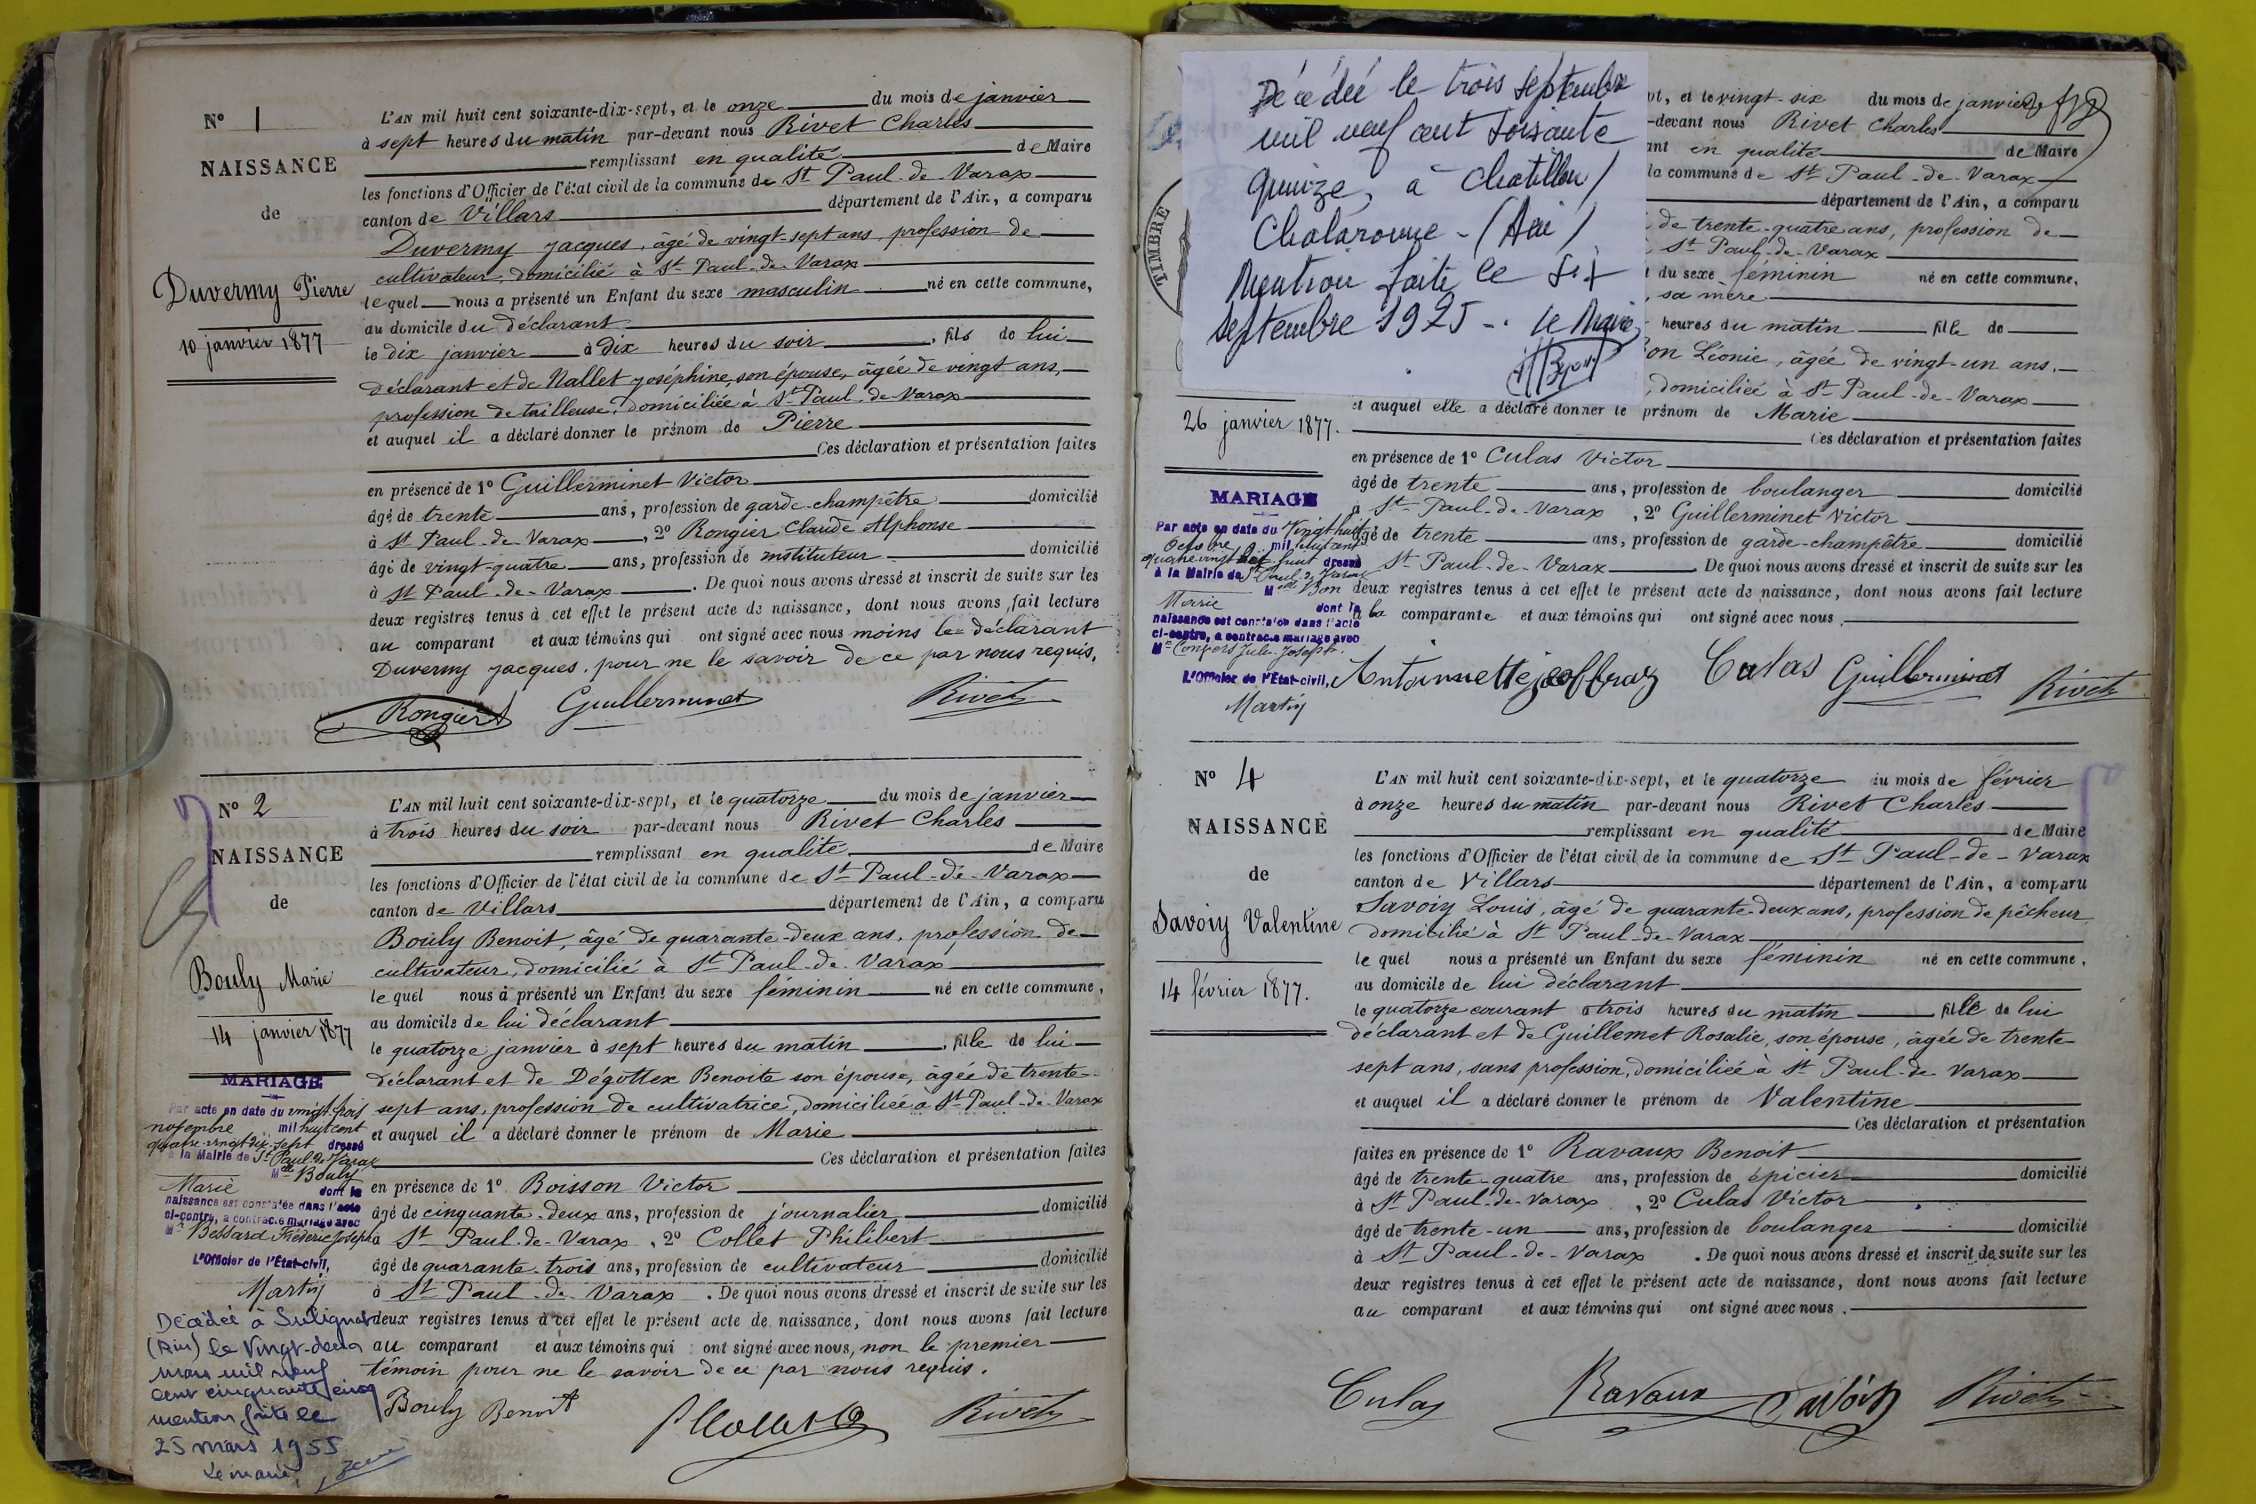 N° 1
NAISSANCE
de
Duvermy Pierre
10 janvier 1877
L'AN mil huit cent soixante-dix-sept, et le onze du mois de janvier
à sept heures du matin par-devant nous Rivet Charles
remplissant en qualité de Maire
les fonctions d'Officier de l'état civil de la commune de St Paul-de-Varax
canton de Villars département de l'Ain, a comparu
Duvermy Jacques, âgé de vingt-sept ans, profession de
cultivateur, domicilié à St Paul-de-Varax
lequel nous a présenté un Enfant du sexe masculin né en cette commune,
au domicile du déclarant
le dix janvier à dix heures du soir, fils de lui
déclarant et de Nallet Joséphine, son épouse, âgée de vingt ans,
profession de tailleuse, domiciliée à St Paul-de-Varax
et auquel il a déclaré donner le prénom de Pierre
Ces déclaration et présentation faites
en présence de 1° Guillerminet Victor
âgé de trente ans, profession de garde-champêtre domicilié
à St Paul-de-Varax, 2° Rongier Claude Alphonse
âgé de vingt-quatre ans, profession de instituteur domicilié
à St Paul-de-Varax. De quoi nous avons dressé et inscrit de suite sur les
deux registres tenus à cet effet le présent acte de naissance, dont nous avons fait lecture
au comparant et aux témoins qui ont signé avec nous moins le déclarant
Duvermy Jacques, pour ne le savoir de ce par nous requis.
Rongier Guillerminet Rivet
N° 2
NAISSANCE
de
Bouly Marie
14 janvier 1877
MARIAGE
Par acte en date du vingt trois
novembre mil huit cent
quatre-vingt dix-sept dressé
à la Mairie de St Paul de Varax
Melle Bouly
Marie dont la
naissance est constatée dans l'acte
ci-contre, a contracté mariage avec
Mr Bessard Frédéric Joseph
L'Officier de l'État-civil,
Martin
Décédée à Sulignat
(Ain) le vingt-deux
mars mil neuf
cent cinquante cinq
mention faite le
25 mars 1955
Le maire,
L'AN mil huit cent soixante-dix-sept, et le quatorze du mois de janvier
à trois heures du soir par-devant nous Rivet Charles
remplissant en qualité de Maire
les fonctions d'Officier de l'état civil de la commune de St Paul-de-Varax
canton de Villars département de l'Ain, a comparu
Bouly Benoit, âgé de quarante-deux ans, profession de
cultivateur, domicilié à St Paul-de-Varax
lequel nous a présenté un Enfant du sexe féminin né en cette commune,
au domicile de lui déclarant
le quatorze janvier à sept heures du matin, fille de lui
déclarant et de Dégottex Benoite son épouse, âgée de trente-
sept ans, profession de cultivatrice, domiciliée à St Paul-de-Varax
et auquel il a déclaré donner le prénom de Marie
Ces déclaration et présentation faites
en présence de 1° Boisson Victor
âgé de cinquante-deux ans, profession de journalier domicilié
à St Paul-de-Varax, 2° Collet Philibert
âgé de quarante-trois ans, profession de cultivateur domicilié
à St Paul-de-Varax. De quoi nous avons dressé et inscrit de suite sur les
deux registres tenus à cet effet le présent acte de naissance, dont nous avons fait lecture
au comparant et aux témoins qui ont signé avec nous, non le premier
témoin pour ne le savoir de ce par nous requis.
Bouly Benoit Rivet
Décédée le trois septembre
mil neuf cent soixante
quinze, à Chatillon /
Chalaronne - (Ain)
Mention faite le six
septembre 1975 -. Le Maire,
TIMBRE
26 janvier 1877.
MARIAGE
Par acte en date du vingt huit
octobre mil huit cent
quatre vingt dix huit dressé
à la Mairie de St Paul de Varax
Melle Bon
Marie dont la
naissance est constatée dans l'acte
ci-contre, a contracté mariage avec
Mr Convers Jules Joseph.
L'Officier de l'État-civil,
Martin
pt, et le vingt-six du mois de janvier
-devant nous Rivet Charles
ant en qualité de Maire
la commune de St Paul-de-Varax
département de l'Ain, a comparu
de trente-quatre ans, profession de
St Paul-de-Varax
t du sexe féminin né en cette commune,
, sa mère
heures du matin fille de
on Léonie, âgée de vingt-un ans,
, domiciliée à St Paul-de-Varax
et auquel elle a déclaré donner le prénom de Marie
Ces déclaration et présentation faites
en présence de 1° Culas Victor
âgé de trente ans, profession de boulanger domicilié
à St Paul-de-Varax, 2° Guillerminet Victor
âgé de trente ans, profession de garde-champêtre domicilié
St Paul-de-Varax De quoi nous avons dressé et inscrit de suite sur les
deux registres tenus à cet effet le présent acte de naissance, dont nous avons fait lecture
à la comparante et aux témoins qui ont signé avec nous.
Antoinette Jeoffray Culas Guillerminet Rivet
N° 4
NAISSANCE
de
Savoiy Valentine
14 février 1877.
L'AN mil huit cent soixante-dix-sept, et le quatorze du mois de février
à onze heures du matin par-devant nous Rivet Charles
remplissant en qualité de Maire
les fonctions d'Officier de l'état civil de la commune de St Paul-de-Varax
canton de Villars département de l'Ain, a comparu
Savoiy Louis, âgé de quarante-deux ans, profession de pêcheur
domicilié à St Paul-de-Varax
lequel nous a présenté un Enfant du sexe féminin né en cette commune,
au domicile de lui déclarant
le quatorze courant à trois heures du matin fille de lui
déclarant et de Guillemet Rosalie, son épouse, âgée de trente-
sept ans, sans profession, domiciliée à St Paul-de-Varax
et auquel il a déclaré donner le prénom de Valentine
Ces déclaration et présentation
faites en présence de 1° Ravaux Benoit
âgé de trente-quatre ans, profession de épicier domicilié
à St Paul-de-Varax, 2° Culas Victor
âgé de trente-un ans, profession de boulanger domicilié
à St Paul-de-Varax. De quoi nous avons dressé et inscrit de suite sur les
deux registres tenus à cet effet le présent acte de naissance, dont nous avons fait lecture
au comparant et aux témoins qui ont signé avec nous.
Culas Ravaux Savoiy Rivet